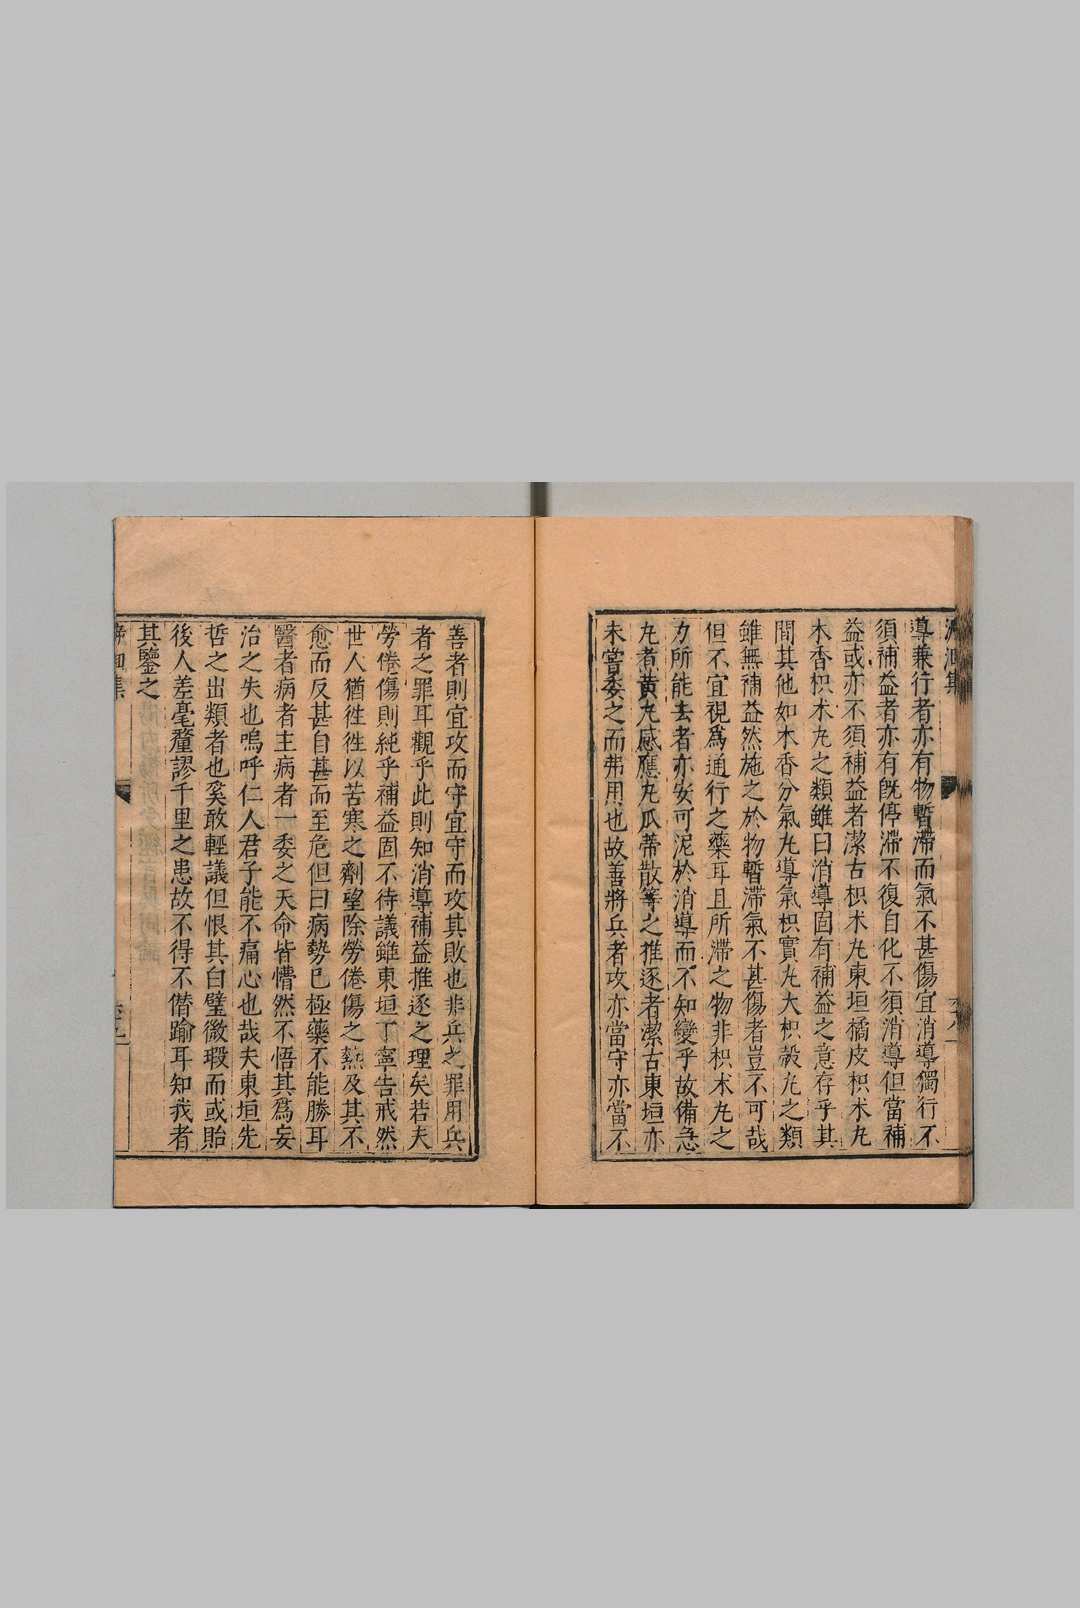 導兼行者亦有物暫滯而氣不甚傷宜消導獨行不
須補益者亦有既停滯不復自化不須消導但當補
益或亦不須補益者潔古枳朮丸東垣橘皮枳朮丸
木香枳朮丸之類雖曰消導固有補益之意存乎其
間其他如木香分氣丸導氣枳實丸大枳殼丸之類
雖無補益然施之於物暫滯氣不甚傷者豈不可哉
但不宜視爲通行之藥耳且所滯之物非枳朮丸之
力所能去者亦安可泥於消導而不知變乎故備急
丸煮黃丸感應丸瓜蒂散等之推逐者潔古東垣亦
未嘗委之而弗用也故善將兵者攻亦當守亦當不
善者則宜攻而守宜守而攻其敗也非兵之罪用兵
者之罪耳觀乎此則知消導補益推逐之理矣若夫
勞倦傷則純乎補益固不待議雖東垣丁寧告戒然
世人猶徃徃以苦寒之劑望除勞倦傷之熱及其不
愈而反甚自甚而至危但曰病勢已極藥不能勝耳
醫者病者主病者一委之天命皆懵然不悟其爲妄
治之失也嗚呼仁人君子能不痛心也哉夫東垣先
哲之出類者也奚敢輕議但恨其白璧微瑕而或貽
後人差毫釐謬千里之患故不得不僭踰耳知我者
其鑒之